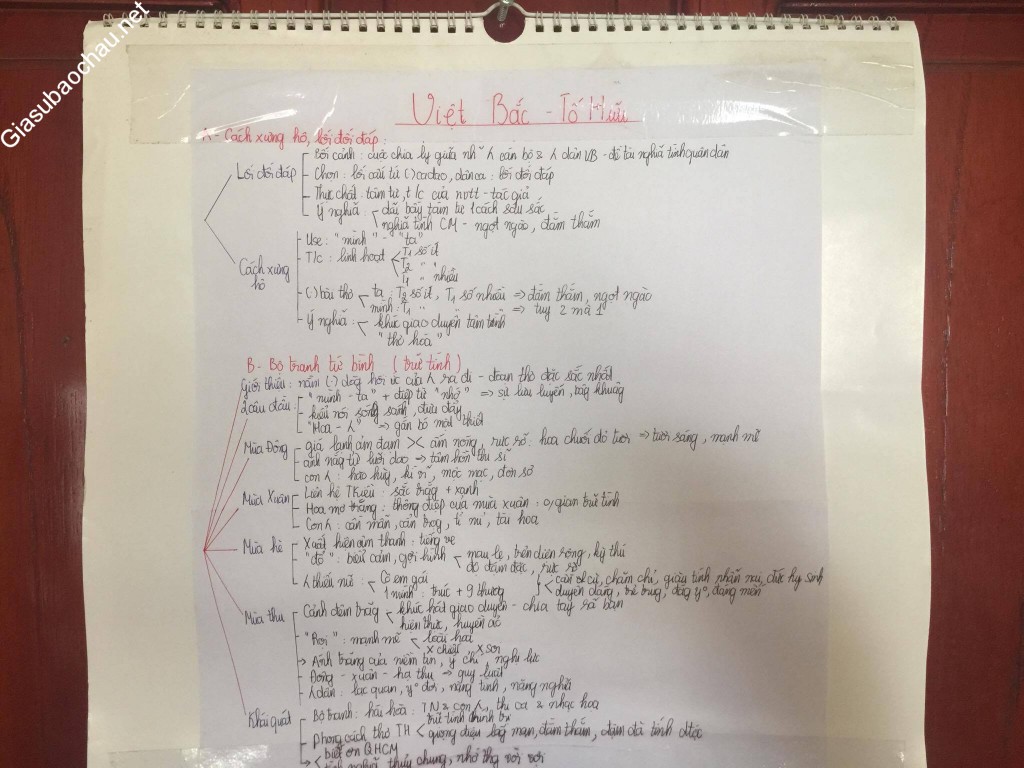 Giasubaochau.net
Việt Bắc - Tố Hữu
A - Cách xưng hô, lối đối đáp:
Lối đối đáp
Bối cảnh: cuộc chia ly giữa nh~ λ cán bộ & λ dân VB - đề tài nghĩa tình quân dân
Chọn: lối cấu tứ (-) ca dao, dân ca: lối đối đáp
Thực chất: tâm tư, t/c của nvtt - tác giả
Ý nghĩa: dãi bày tâm tư 1 cách sâu sắc
nghĩa tình CM - ngọt ngào, đằm thắm
Cách xưng hô
Use: "mình" - "ta"
T/c: linh hoạt
T1 số ít
T2 " "
T1 " nhiều
(-) bài thơ
ta: T2 số ít, T1 số nhiều => đằm thắm, ngọt ngào
mình: T1 " => tuy 2 mà 1
Ý nghĩa: khúc giao duyên tâm tình
"thi hoá"
B - Bộ tranh tứ bình (trữ tình)
Giới thiệu: nằm (-) dòng hồi ức của λ ra đi - đoạn thơ đặc sắc nhất
2 câu đầu:
"mình - ta" + điệp từ "nhớ" => sự lưu luyến,
kiểu nói sóng sánh, đưu đẩy
"Hoa - λ" => gắn bó mật thiết
Mùa Đông
giá lạnh ảm đạm >< ấm nóng, rực rỡ: hoa chuối đỏ tươi => tươi sáng, mạnh mẽ
ánh nắng từ lưỡi dao => tâm hồn thi sĩ
con λ: hào hùng, kì vĩ, mộc mạc, đơn sơ
Mùa Xuân
Liên hệ T.Kiều: sắc trắng + xanh
Hoa mơ trắng: thông điệp của mùa xuân: gian trữ tình
Con λ: cần mẫn, cẩn trọng, tỉ mỉ, tài hoa
Mùa hè
Xuất hiện âm thanh: tiếng ve
"đổ": biểu cảm, gợi hình
mau lẹ, trên diện rộng, kỳ thú
đổ đậm đặc, rực rỡ
λ thiếu nữ:
Cô em gái
1 mình: trúc + 9 thương
cần cù, chăm chỉ, giàu tính nhẫn nại, đức hy sinh
duyên dáng, trẻ trung, đáng yº, đáng mến
Mùa thu
Cảnh đêm trăng
khúc hát giao duyên - chia tay rã bạn
hiện thực, huyền ảo
"Rọi": mạnh mẽ
loại hai
x chiếu x soi
→ Ánh trăng của niềm tin, ý chí, nghị lực
Đông - xuân - hạ thu → quy luật
λ dân: lạc quan, yº đời, nặng tình, nặng nghĩa
Khái quát
Bộ tranh: hài hoà: TN & con λ, thi ca & nhạc hoạ
Phong cách thơ TH
trữ tình chính trị
giọng điệu lãng mạn, đằm thắm, đậm đà tính dtộc
→ biết ơn QHCM
tình nghĩa thuỷ chung, nhớ thg vời vợi